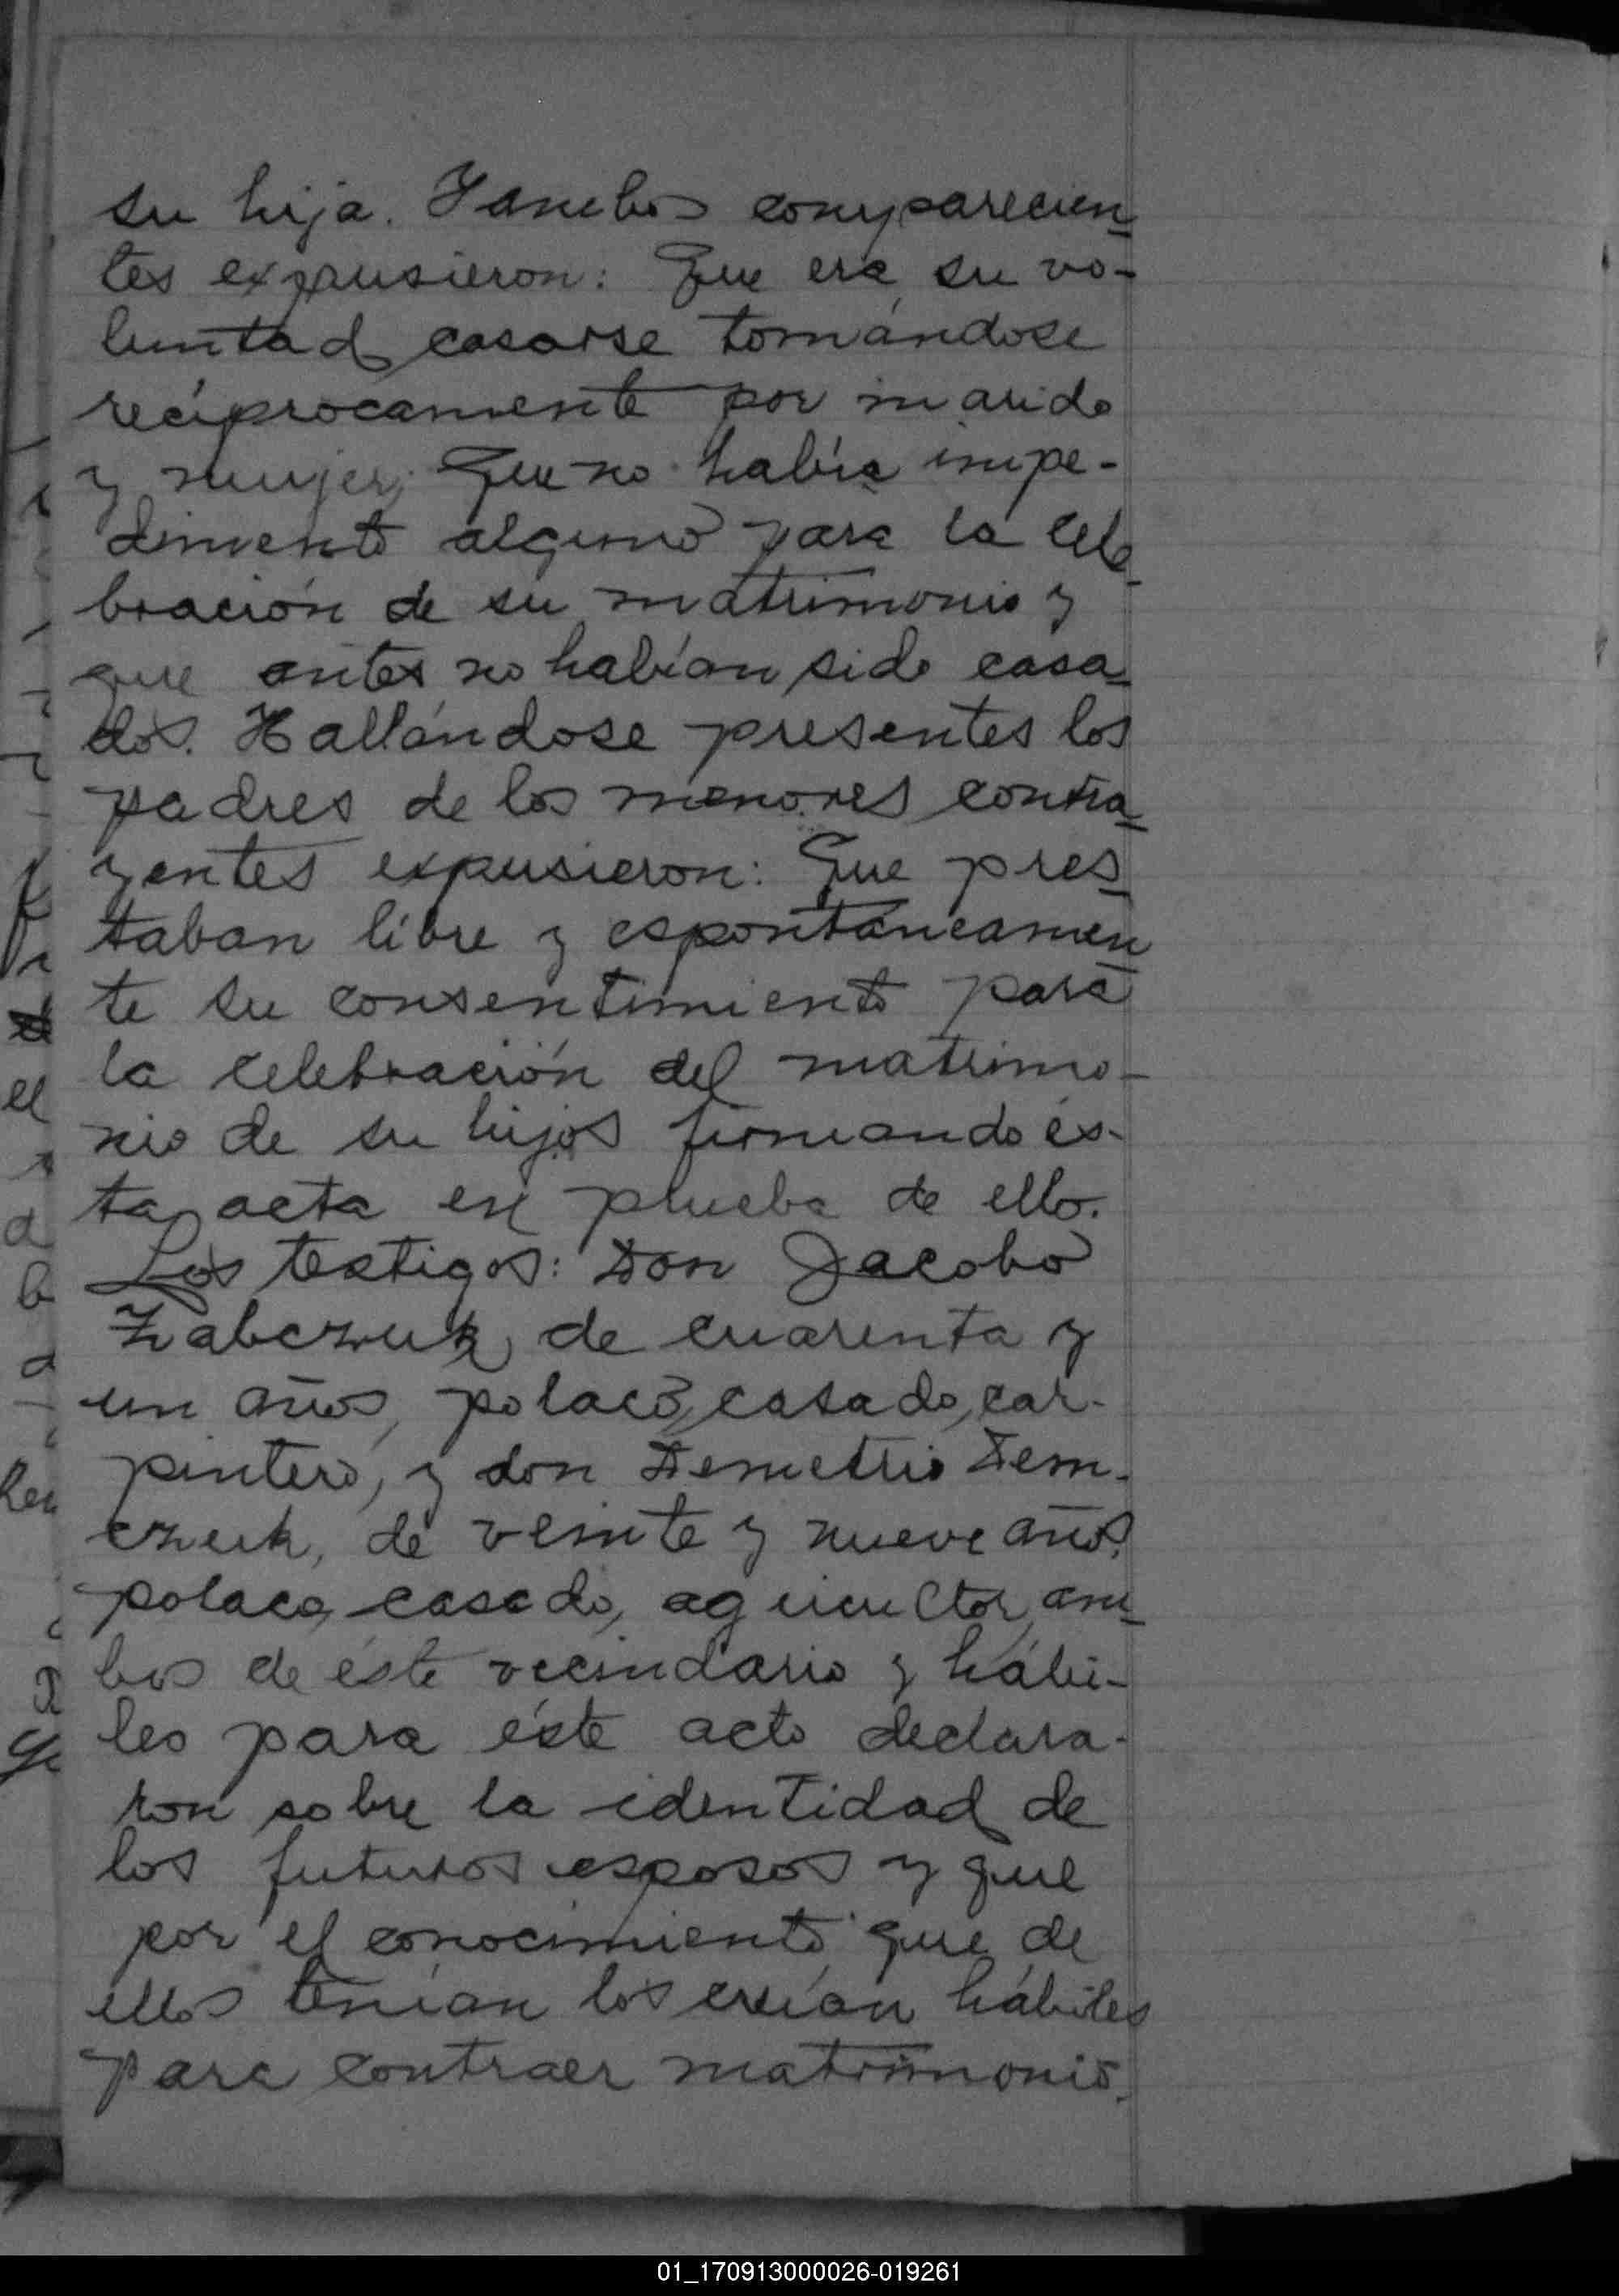 su hija. Y ambos comparecien-
tes expusieron: Que era su vo-
luntad casarse tomándose
recíprocamente por marido
y mujer; Que no había impe-
dimento alguno para la cele-
bración de su matrimonio y
que antes no habían sido casa-
dos. Hallándose presentes los
padres de los menores contra-
yentes expusieron: Que pres-
taban libre y espontáneamen
te su consentimiento para
la celebración del matrimo-
nio de su hijos firmando és-
ta acta en prueba de ello.
Los testigos: Don Jacobo
Zabczuk, de cuarenta y
un años, polaco, casado, car-
pintero, y don Demetrio Dem-
czuk, de veinte y nueve años,
polaco, casado, agricultor, am-
bos de éste vecindario y hábi-
les para éste acto declara-
ron sobre la identidad de
los futuros esposos y que
por el conocimiento que de
ellos tenían los creían hábiles
para contraer matrimonio.
01_170913000026-019261